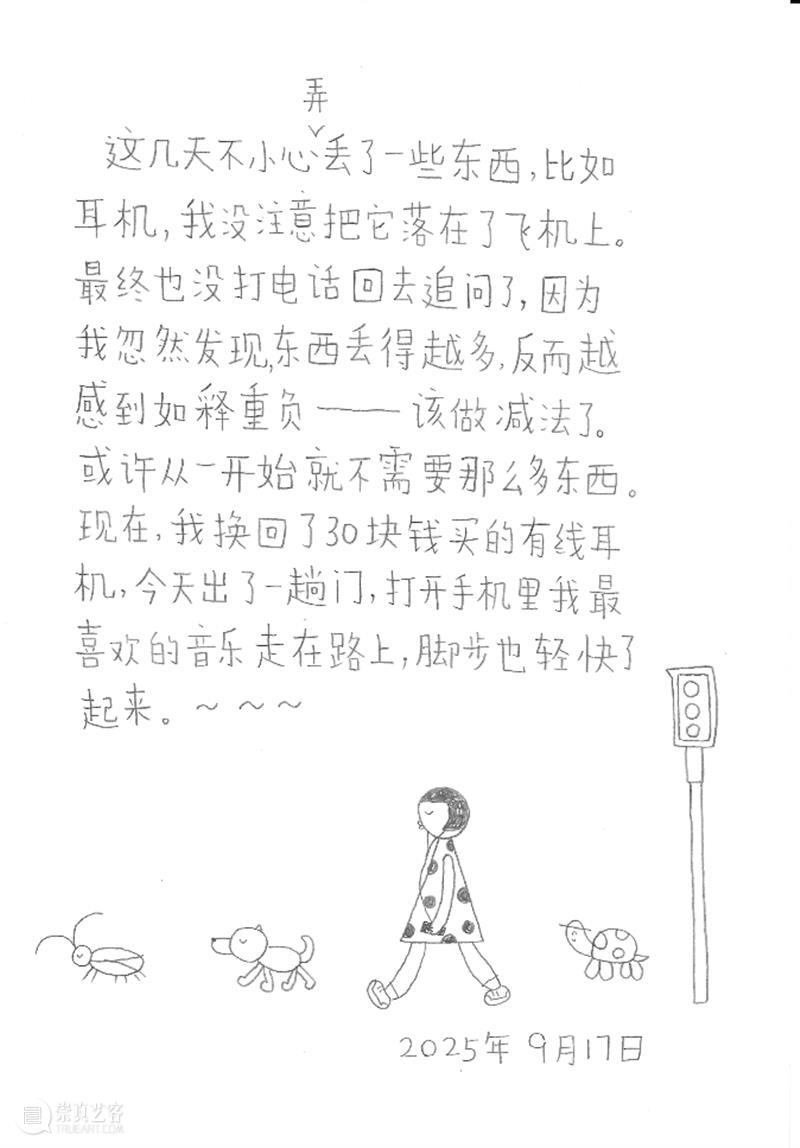 弄
这几天不小心丢了一些东西,比如
耳机,我没注意把它落在了飞机上。
最终也没打电话回去追问了,因为
我忽然发现,东西丢得越多,反而越
感到如释重负——该做减法了。
或许从一开始就不需要那么多东西。
现在,我换回了30块钱买的有线耳
机,今天出了一趟门,打开手机里我最
喜欢的音乐走在路上,脚步也轻快了
起来。~~~
2025年9月17日
崇真艺客
TRUEART.COM